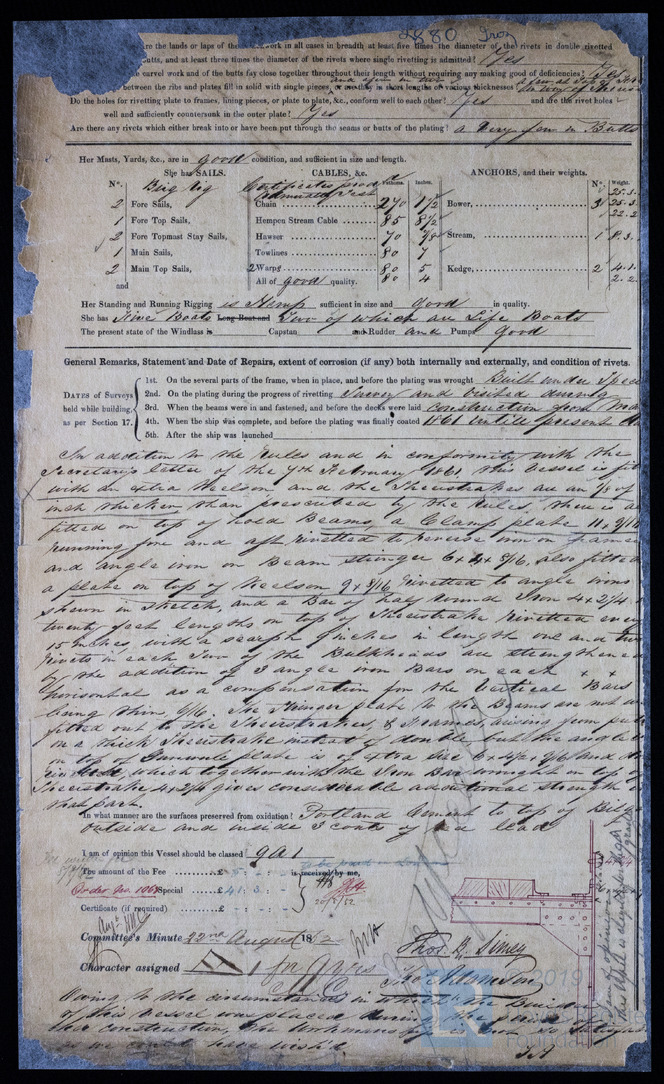 2880 Iron
are the lands or laps of the work in all cases in breadth at least five times the diameter of the rivets in double rivetted
butts, and at least three times the diameter of the rivets where single rivetting is admitted? Yes
carvel work and of the butts fay close together throughout their length without requiring any making good of deficiencies? Yes
between the ribs and plates fill in solid with single pieces, or in short lengths of various thicknesses
Do the holes for rivetting plate to frames, lining pieces, or plate to plate, &c., conform well to each other? Yes and are the rivet holes
well and sufficiently countersunk in the outer plate? Yes
Are there any rivets which either break into or have been put through the seams or butts of the plating? a very few in Butts
Her Masts, Yards, &c., are in good condition, and sufficient in size and length.
She has SAILS. CABLES, &c. Fathoms. Inches. ANCHORS, and their weights.
Nº. Brig Rig Certificates prod Nº. Weight.
2 Fore Sails, Chain 270 1½ Bower, 3 25.3.
1 Fore Top Sails, Hempen Stream Cable 85 8½ 22.2
2 Fore Topmast Stay Sails, Hawser 70 7/8 Stream, 1 8.3.
1 Main Sails, Towlines 80 7
2 Main Top Sails, 2 Warps 80 5 Kedge, 2 4.1.
and All of good quality. 80 4 2.2.
Her Standing and Running Rigging is Hemp sufficient in size and good in quality.
She has Nine Boats Long Boat and Two of which are Life Boats
The present state of the Windlass is Capstan and Rudder and Pumps Good
General Remarks, Statement and Date of Repairs, extent of corrosion (if any) both internally and externally, and condition of rivets.
DATES of Surveys held while building, as per Section 17.
1st. On the several parts of the frame, when in place, and before the plating was wrought Built under Spec
2nd. On the plating during the progress of rivetting Survey and visited during
3rd. When the beams were in and fastened, and before the decks were laid construction from
4th. When the ship was complete, and before the plating was finally coated 1861 untile present
5th. After the ship was launched
In addition to the Rules and in conformity with the
Secretarys letter of the 7th February 1861, this vessel is fit
with an extra Keelson, and the Sheerstrakes are an 1/8 of
inch thicker than prescribed by the rules, there is a
fitted on top of hold Beams a Clamp plate 11 x 9/16
running fore and aft rivetted to reverse iron on frames
and angle iron on Beam stringer 6 x 4 x 8/16, also fitted
a plate on top of Keelson 9 x 8/16 rivetted to angle irons
shewn in sketch, and a Bar of half round Iron 4 x 2 3/4 in
twenty feet lengths on top of Sheerstrake rivetted every
15 inches with a scarph 9 inches in length one and two
rivets in each Two of the Bulkheads are strengthened
by the addition of 3 angle iron Bars on each
horizontal as a compensation for the Vertical Bars
being thin, 5/16. The Stringer plate to the Beams are not
fitted out to the Sheerstrakes, & Frames, arising from
on a thick Sheerstrake insteat of double but the angle
on top of Gunwale plate is of extra size 6 x 4 1/2 x 9/16 and
rivetted which together with the Iron Bar wrought on top of
Sheerstrake 4 x 2 3/4 gives considerable additional strength to
that part.
In what manner are the surfaces preserved from oxidation? Portland Cement to top of Bilge
outside and inside 3 coats of red lead
I am of opinion this Vessel should be classed 9 A 1
The amount of the Fee £5 : - : - is received by me,
Order No. 1068 Special £41 : 3 : -
Certificate (if required) £ - : - : -
Committee's Minute 22nd August 1862
Character assigned A 1 for 9 yrs
Thos. R. Simey
Owing to the circumstances in which the Builder
of this vessel was placed during the period of
her construction, the workmanship is not so satisfac
as we could have wish'd.
© 2019
Foundation